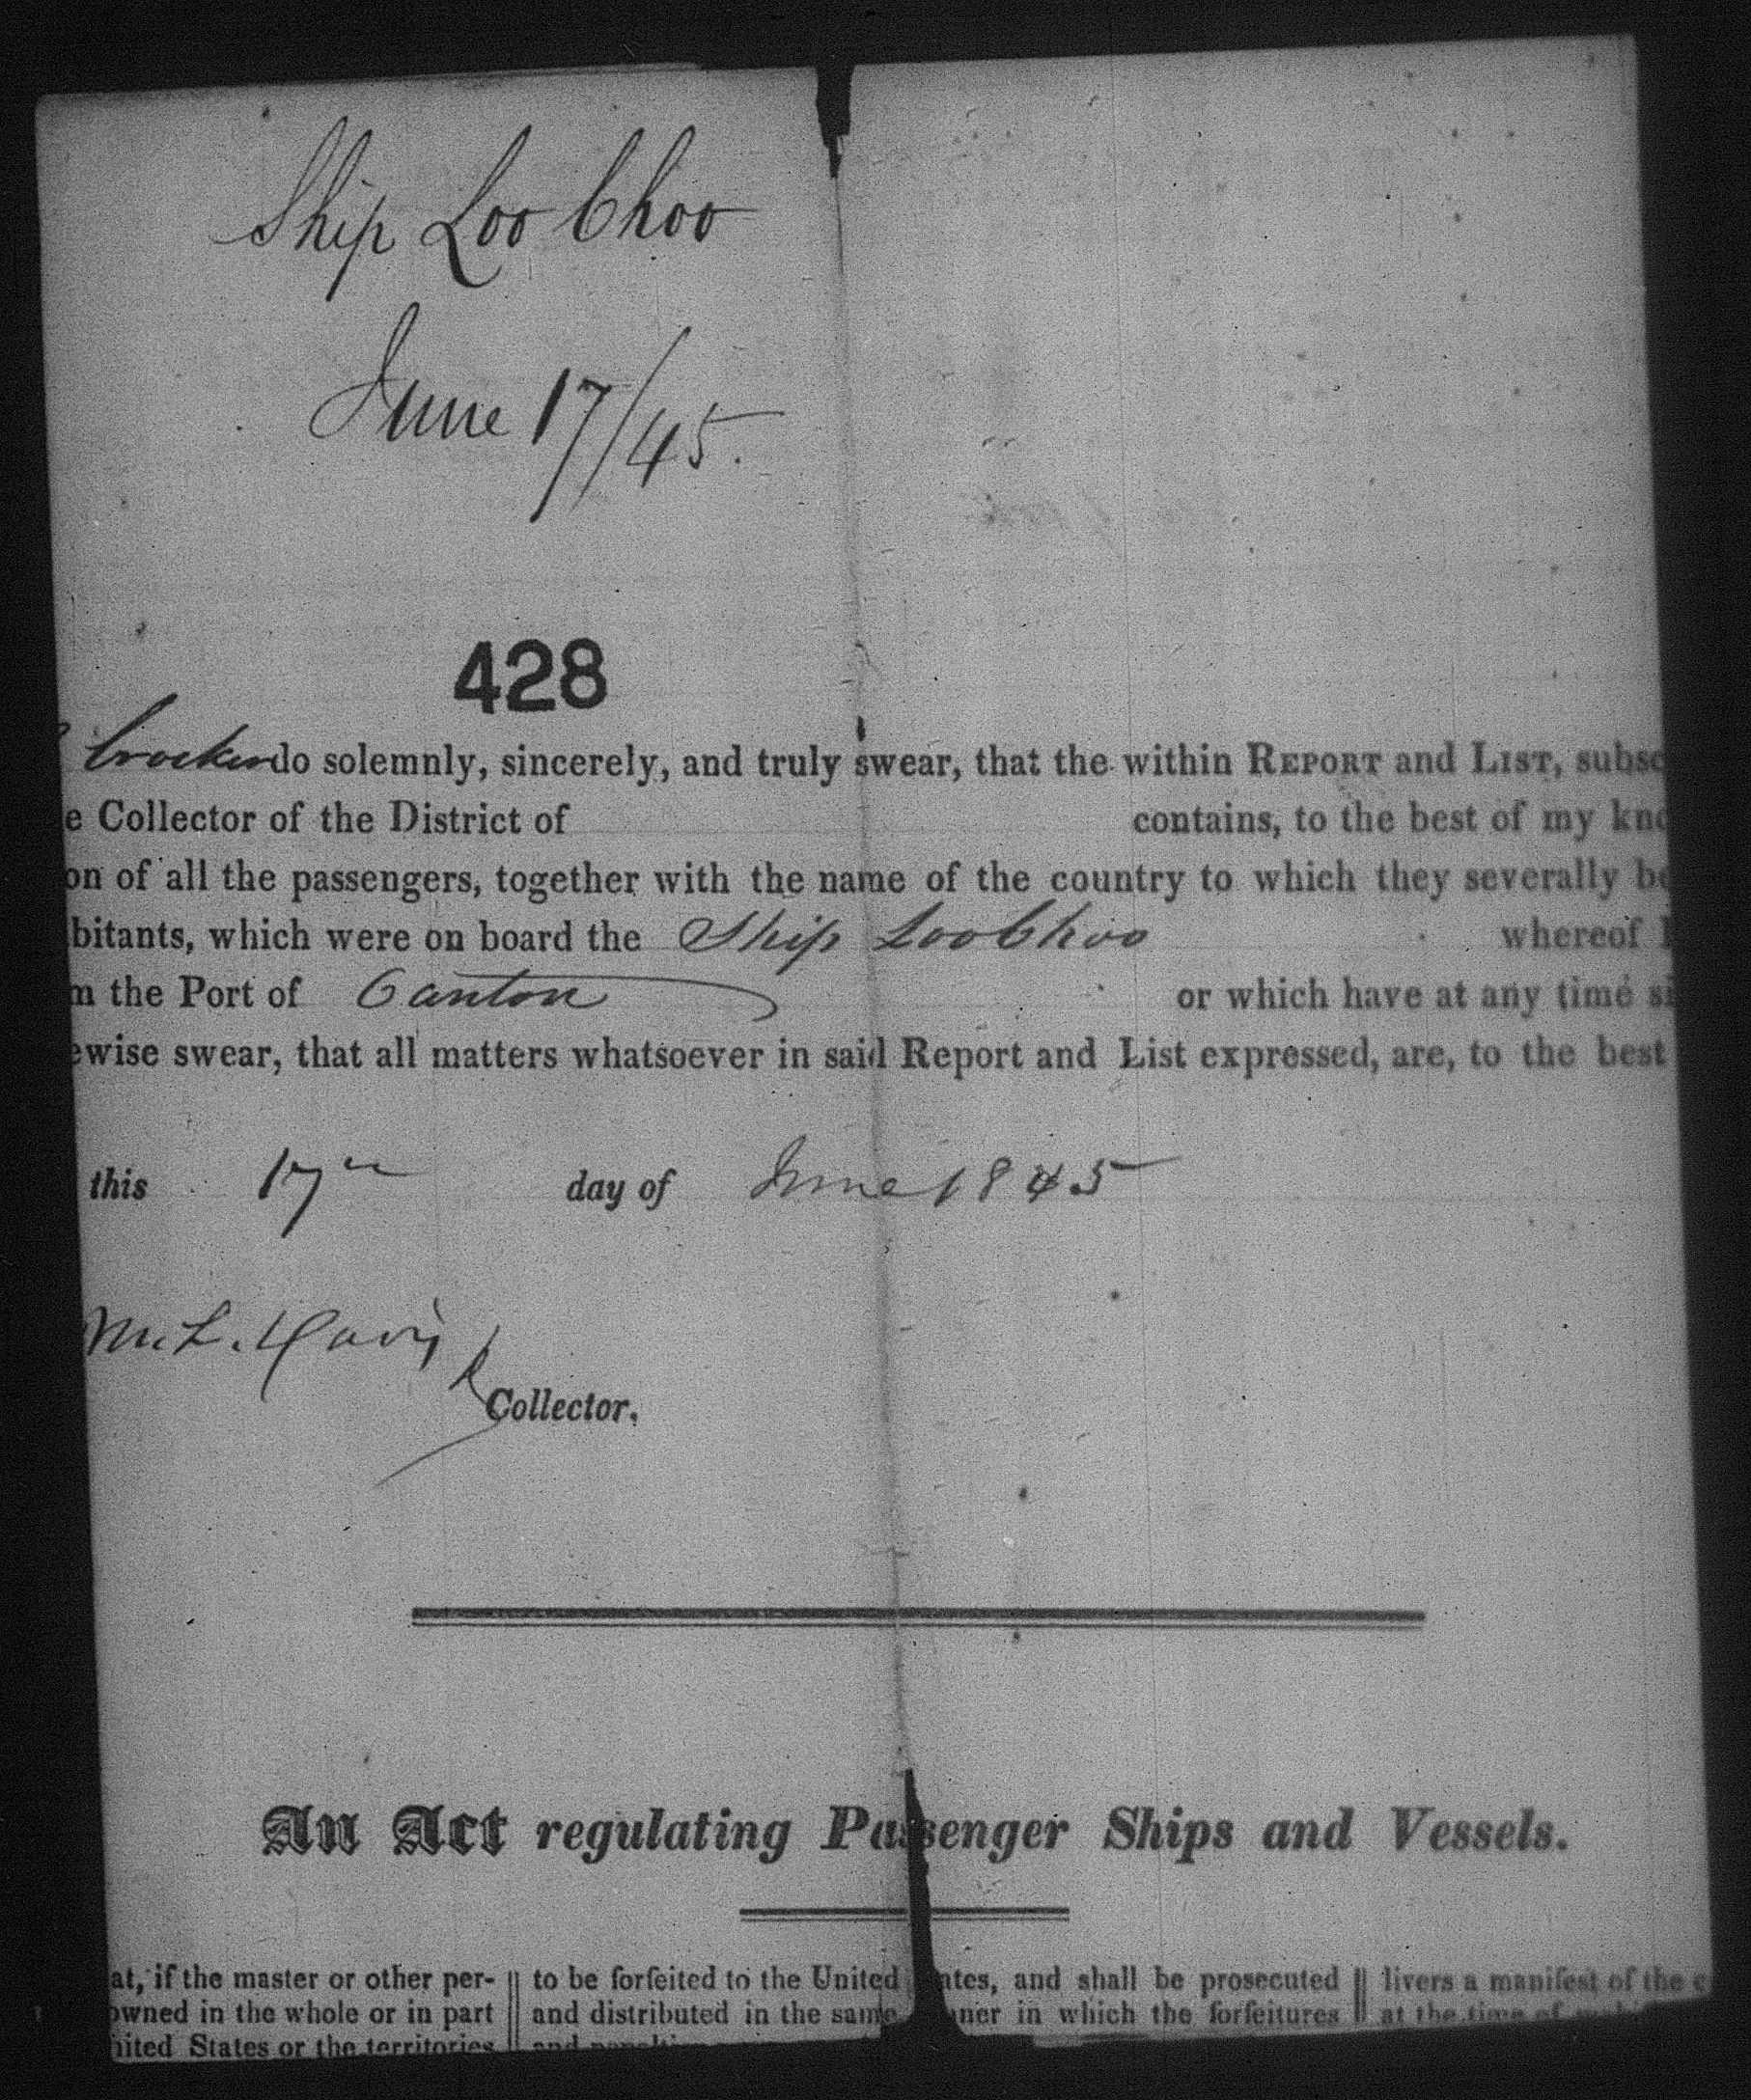 Ship Loo Choo
June 17/45.
428
Crocker do solemnly, sincerely, and truly swear, that the within REPORT and LIST, subsc
e Collector of the District of contains, to the best of my kno
on of all the passengers, together with the name of the country to which they severally be
bitants, which were on board the Ship Loo Choo whereof I
m the Port of Canton or which have at any time si
ewise swear, that all matters whatsoever in said Report and List expressed, are, to the best
this 17th day of June 1845
M. L. Davis
Collector.
An Act regulating Passenger Ships and Vessels.
at, if the master or other per-
owned in the whole or in part
nited States or the territories
to be forfeited to the United ates, and shall be prosecuted
and distributed in the same ner in which the forfeitures
livers a manifest of the c
at the time of